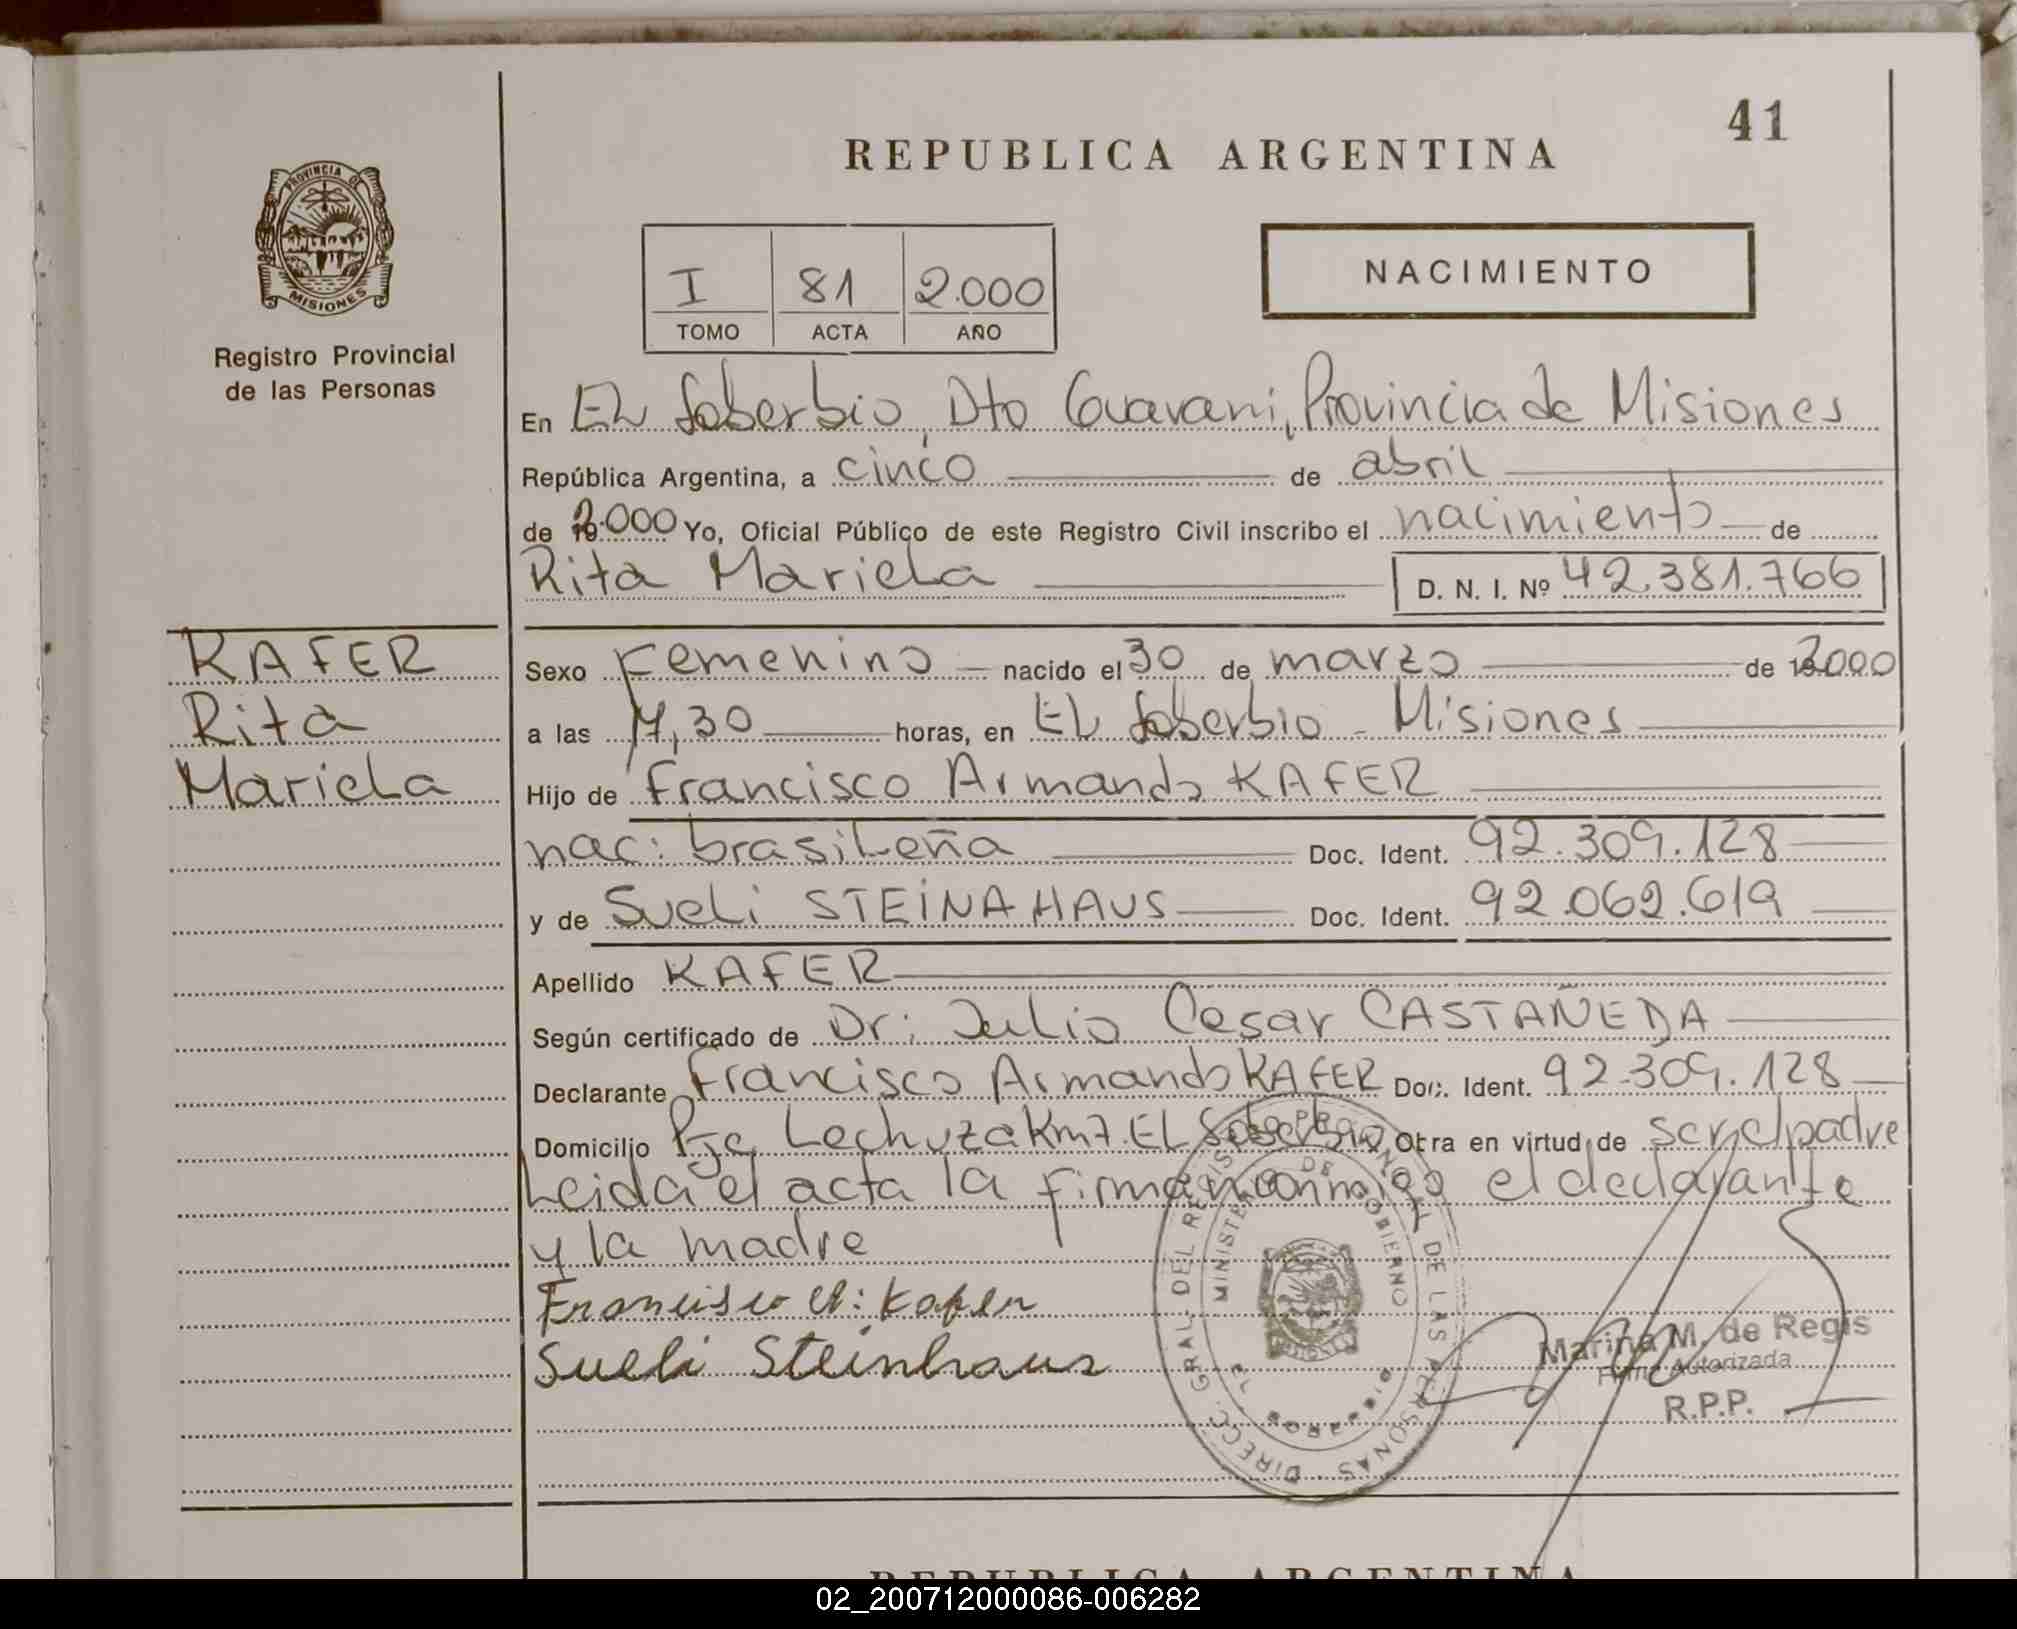 41
REPUBLICA ARGENTINA
PROVINCIA DE
MISIONES
Registro Provincial
de las Personas
I 81 2.000
TOMO ACTA AÑO
NACIMIENTO
En EL Soberbio, Dto Guarani, Provincia de Misiones
República Argentina, a cinco de abril
de 2.000 Yo, Oficial Público de este Registro Civil inscribo el nacimiento de
Rita Mariela D. N. I. Nº 42.381.766
KAFER
Rita
Mariela
Sexo Femenino nacido el 30 de marzo de 2000
a las 17,30 horas, en EL Soberbio - Misiones
Hijo de Francisco Armando KAFER
nac: brasileña Doc. Ident. 92.309.128
y de Sueli STEINAHAUS Doc. Ident. 92.062.619
Apellido KAFER
Según certificado de Dr: Julio Cesar CASTAÑEDA
Declarante Francisco Armando KAFER Doc. Ident. 92.309.128
Domicilio Pje Lechuza Km7. EL Soberbio Otra en virtud de ser el padre
Leida el acta la firman conmigo el declarante
y la madre
Francisco A: Kafer
Sueli Steinhaus
DIRECC. GRAL. DEL DE LAS PERSONAS
MINISTERIO DE GOBIERNO
MISIONES
Marina M. de Regis
Firma Autorizada
R.P.P.
REPUBLICA ARGENTINA
02_200712000086-006282